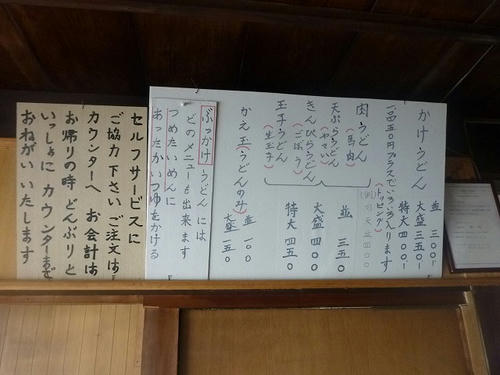 かけうどん
並 三〇〇
大盛 三五〇
特大 四〇〇
一品五〇円プラスでいろいろ入ります
(トッピング)
肉うどん
(馬肉)
天ぷらうどん
(やさい)
きんぴらうどん
(ごぼう)
玉子うどん
(生玉子)
並 三五〇
大盛 四〇〇
特大 四五〇
かえ玉(うどんのみ)
並 一〇〇
大盛 一五〇
ぶっかけうどんには
どのメニューも出来ます
つめたいめんに
あったかいつゆをかける
セルフサービスに
ご協力下さいご注文は
カウンターへ お会計は
お帰りの時 どんぶりと
いっしょに カウンターまで
おねがいいたします